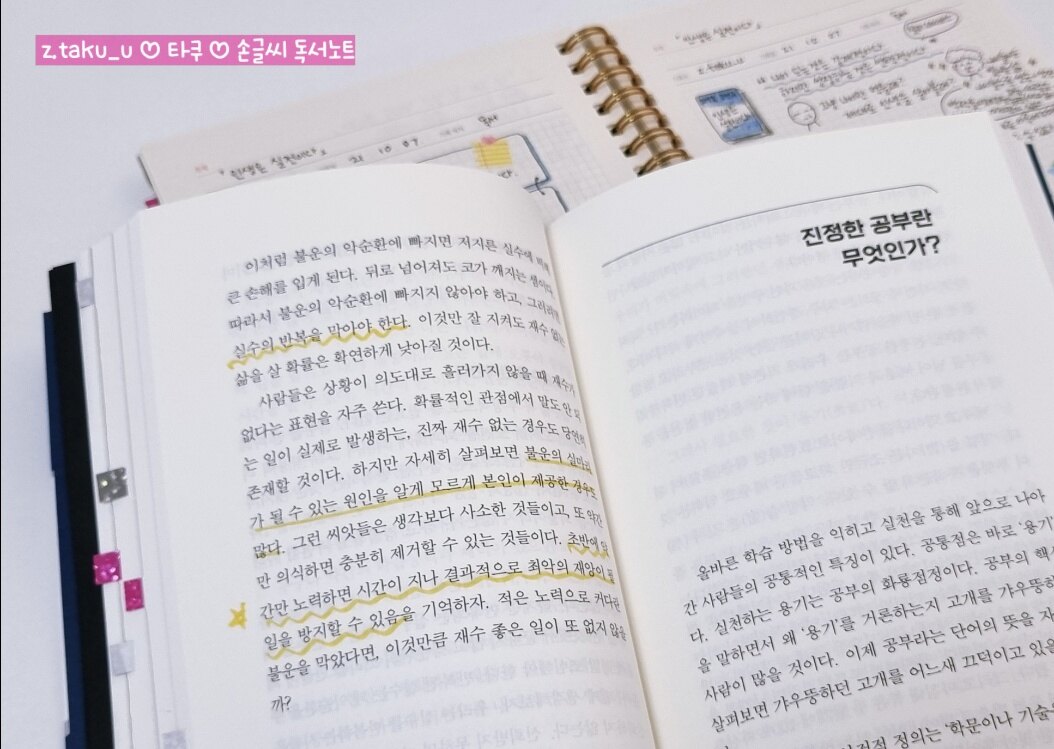 z.taku_u ♡ 타쿠 ♡ 손글씨 독서노트
『인생은 실천이다』
21 10 07
『인생은 실천이다』
21 10 07
이처럼 불운의 악순환에 빠지면 저지른 실수에 비해
큰 손해를 입게 된다. 뒤로 넘어져도 코가 깨지는 셈이다.
따라서 불운의 악순환에 빠지지 않아야 하고, 그러려면
실수의 반복을 막아야 한다. 이것만 잘 지켜도 재수 없는
삶을 살 확률은 확연하게 낮아질 것이다.
사람들은 상황이 의도대로 흘러가지 않을 때 재수가
없다는 표현을 자주 쓴다. 확률적인 관점에서 말도 안 되
는 일이 실제로 발생하는, 진짜 재수 없는 경우도 당연히
존재할 것이다. 하지만 자세히 살펴보면 불운의 실마리
가 될 수 있는 원인을 알게 모르게 본인이 제공한 경우도
많다. 그런 씨앗들은 생각보다 사소한 것들이고, 또 약간
만 의식하면 충분히 제거할 수 있는 것들이다. 초반에 약
간만 노력하면 시간이 지나 결과적으로 최악의 재앙이 될
일을 방지할 수 있음을 기억하자. 적은 노력으로 커다란
불운을 막았다면, 이것만큼 재수 좋은 일이 또 없지 않을
까?
진정한 공부란
무엇인가?
올바른 학습 방법을 익히고 실천을 통해 앞으로 나아
간 사람들의 공통적인 특징이 있다. 공통점은 바로 '용기'
다. 실천하는 용기는 공부의 화룡점정이다. 공부의 핵
을 말하면서 왜 '용기'를 거론하는지 고개를 갸우뚱하
사람이 많을 것이다. 이제 공부라는 단어의 뜻을 자
살펴보면 갸우뚱하던 고개를 어느새 끄덕이고 있을
정의는 '학문이나 기술